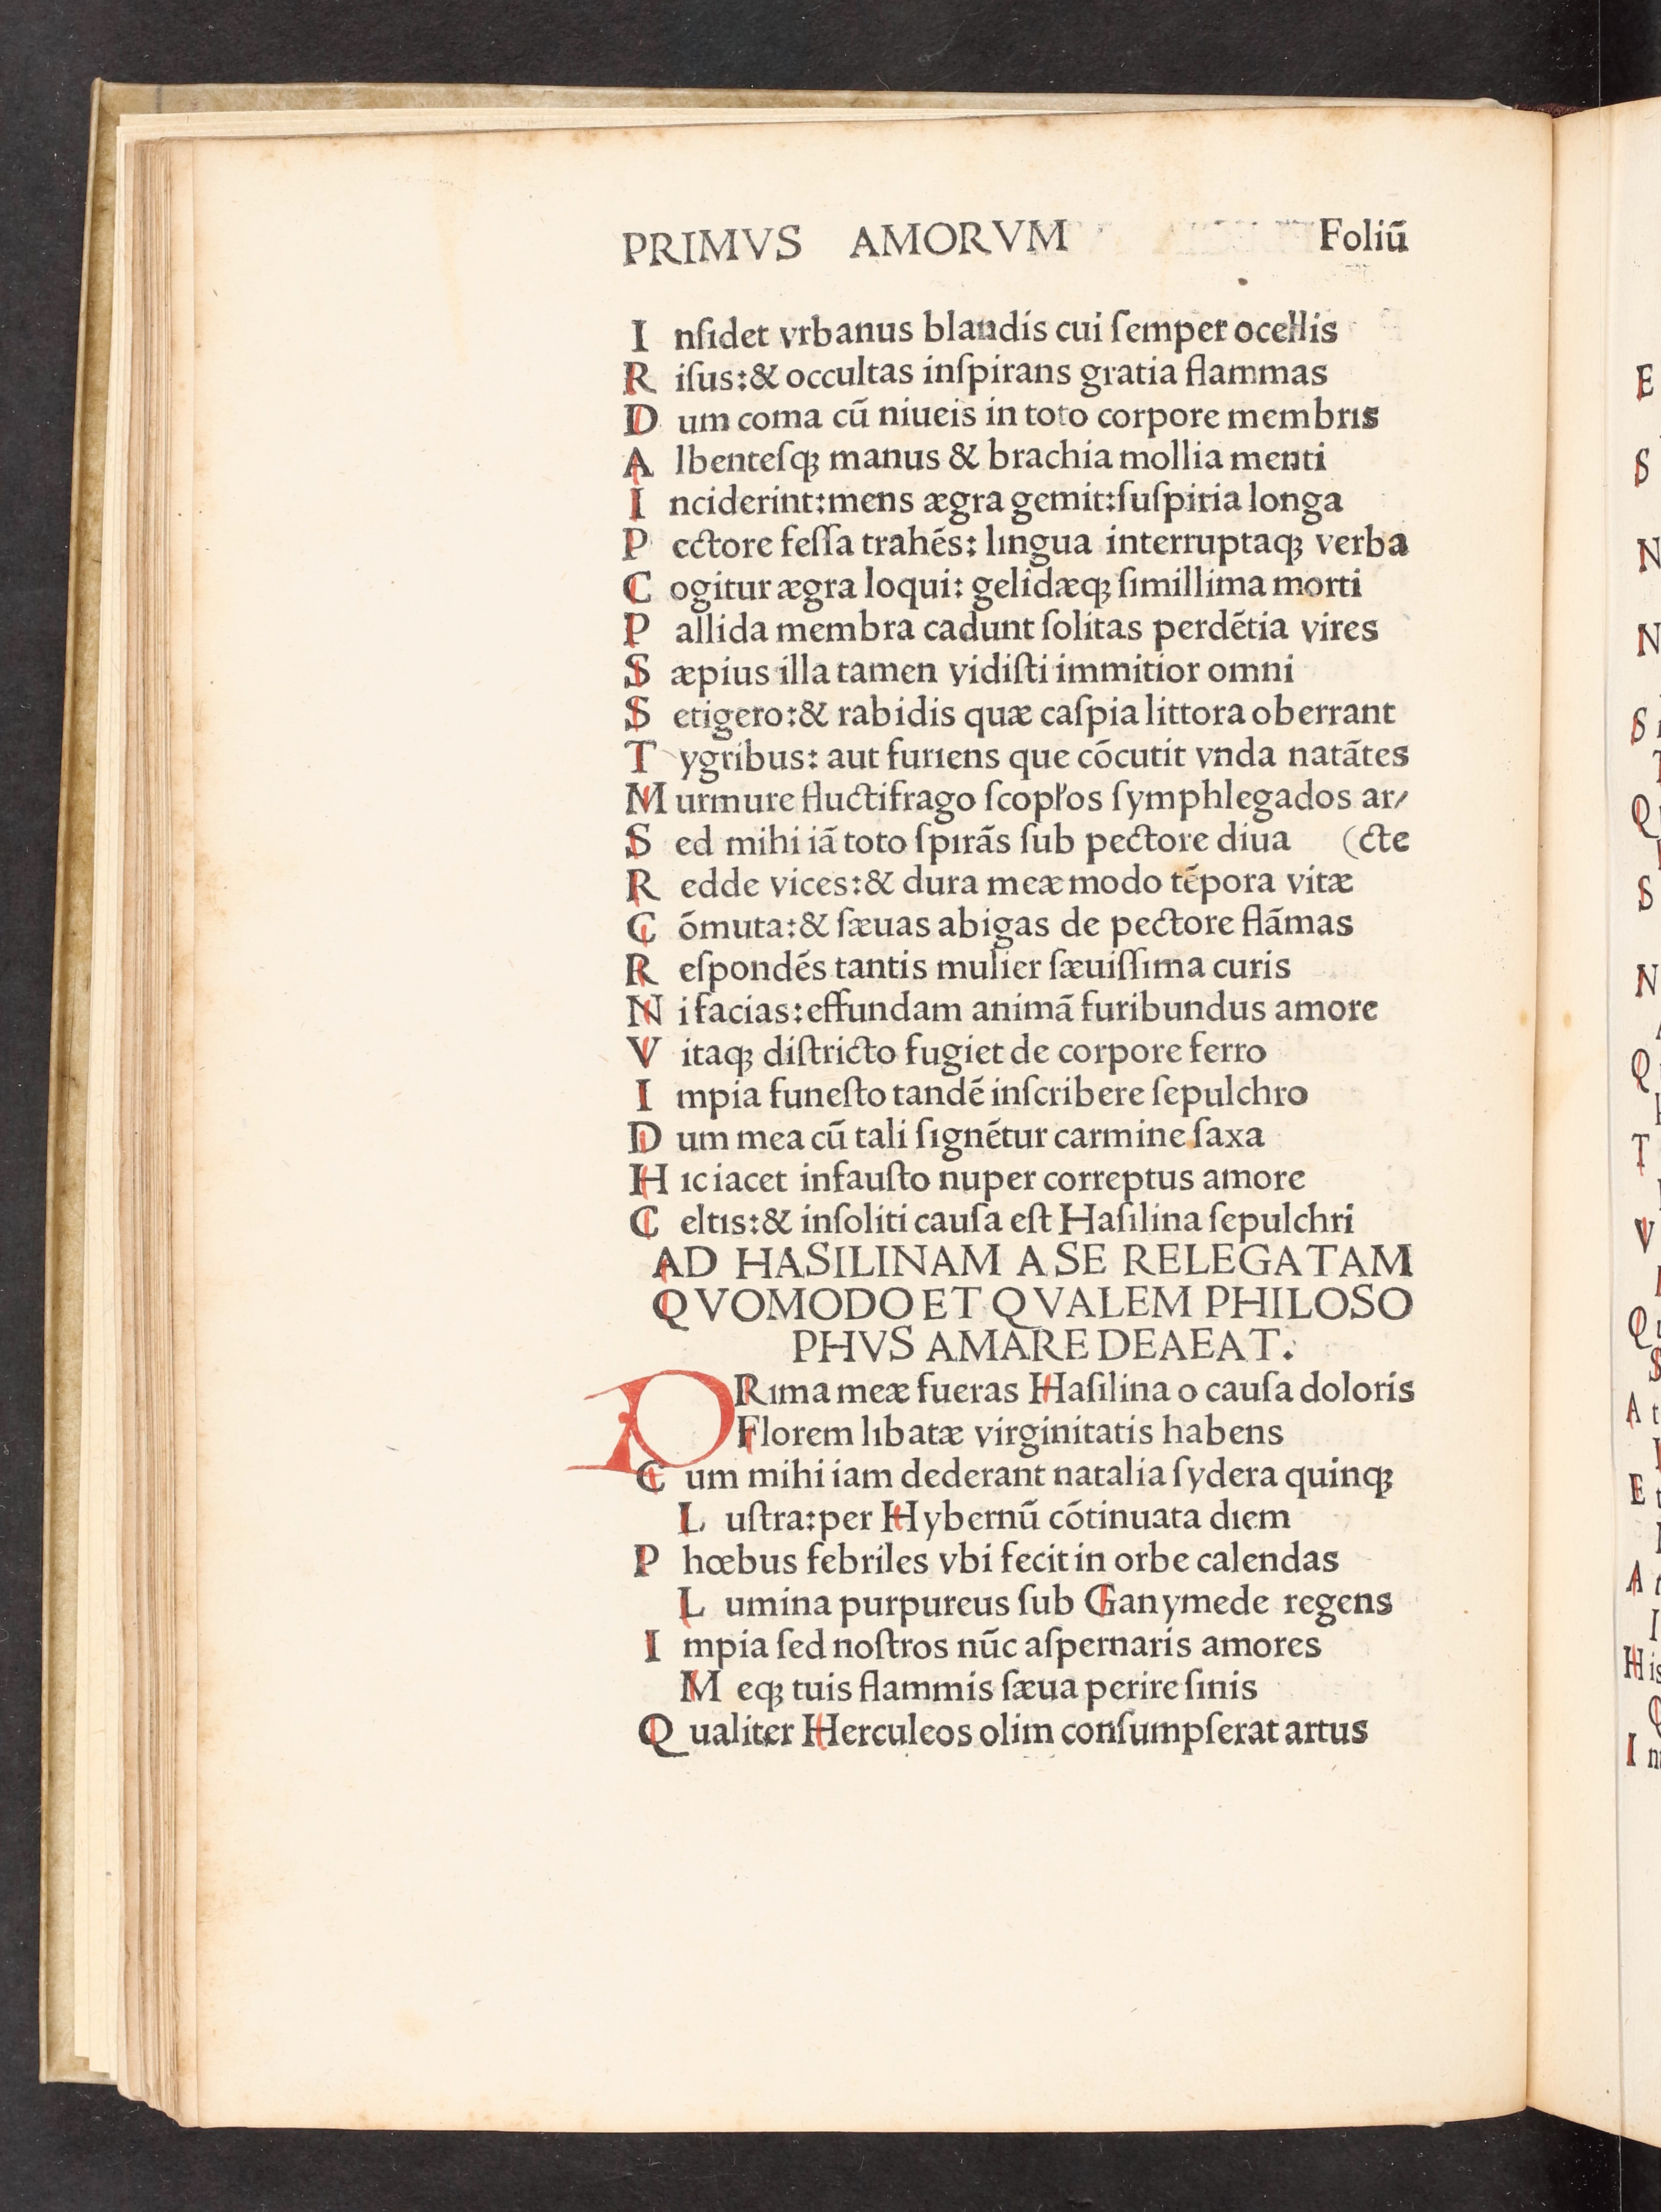 PRIMVS AMORVM Foliū
I nſidet vrbanus blandis cui ſemper ocellis
R iſus:& occultas inſpirans gratia flammas
D um coma cū niueis in toto corpore membris
A lbenteſqꝫ manus & brachia mollia menti
I nciderint:mens ægra gemit:ſuſpiria longa
P ectore feſſa trahēs: lingua interruptaqꝫ verba
C ogitur ægra loqui: gelidæqꝫ ſimillima morti
P allida membra cadunt ſolitas perdētia vires
S æpius illa tamen vidiſti immitior omni
S etigero:& rabidis quæ caſpia littora oberrant
T ygribus: aut furiens que cōcutit vnda natātes
M urmure fluctifrago ſcopl'os ſymphlegados ar/
S ed mihi iā toto ſpirās ſub pectore diua (cte
R edde vices:& dura meæ modo tēpora vitæ
C ōmuta:& ſæuas abigas de pectore flāmas
R eſpondēs tantis mulier ſæuiſſima curis
N i facias:effundam animā furibundus amore
V itaqꝫ diſtricto fugiet de corpore ferro
I mpia funeſto tandē inſcribere ſepulchro
D um mea cū tali ſignētur carmine ſaxa
H ic iacet infauſto nuper correptus amore
C eltis:& inſoliti cauſa eſt Haſilina ſepulchri
AD HASILINAM A SE RELEGATAM
QVOMODO ET QVALEM PHILOSO
PHVS AMARE DEAEAT.
PRima meæ fueras Haſilina o cauſa doloris
Florem libatæ virginitatis habens
C um mihi iam dederant natalia ſydera quinqꝫ
L uſtra:per Hybernū cōtinuata diem
P hœbus febriles vbi fecit in orbe calendas
L umina purpureus ſub Ganymede regens
I mpia ſed noſtros nūc aſpernaris amores
M eqꝫ tuis flammis ſæua perire ſinis
Q ualiter Herculeos olim conſumpſerat artus
E
S
N
N
S
Q
S
N
Q
T
V
Q
A t
E t
A t
His
I n